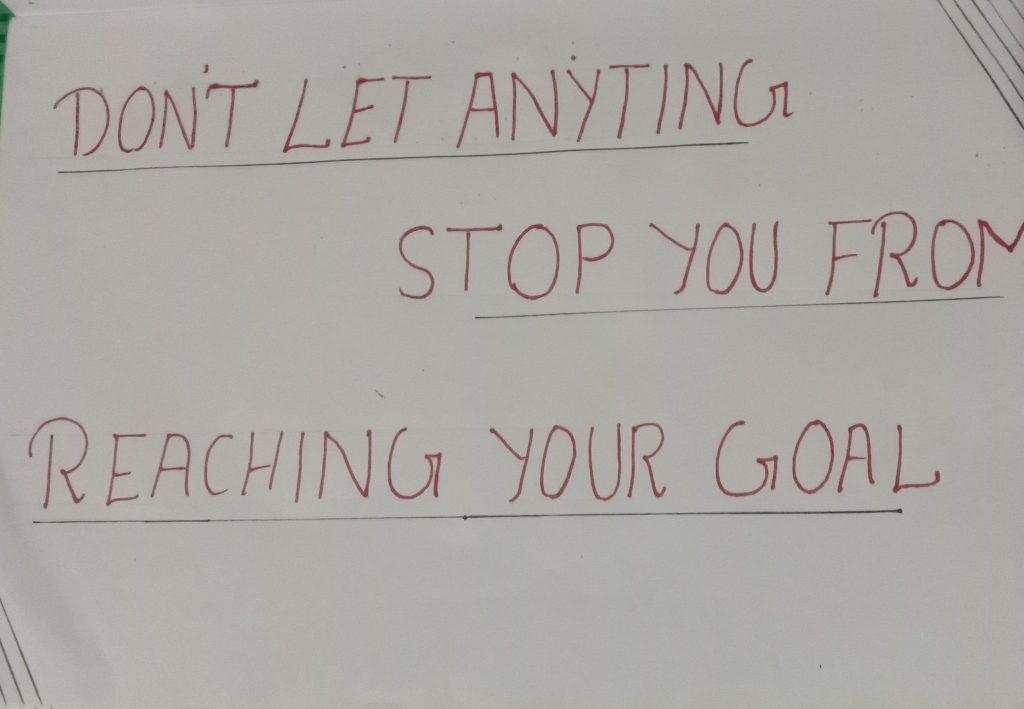 DON'T LET ANYTING
STOP YOU FROM
REACHING YOUR GOAL